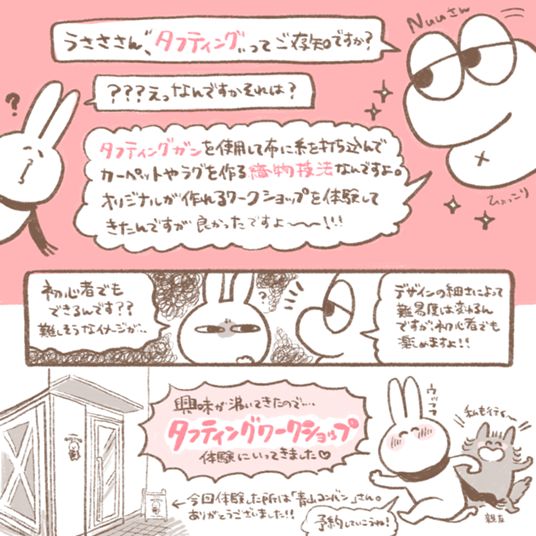 Nuuさん
うさささん、"タフティング"ってご存知ですか?
???えっなんですかそれは?
?
タフティングガンを使用して布に糸を打ち込んで
カーペットやラグを作る織物技法なんですよ。
オリジナルが作れるワークショップを体験して
きたんですが良かったですよ〜〜!!!
ひょっこり
初心者でも
できるんです??
難しそうなイメージが…
?
デザインの細さによって
難易度は変わるん
ですが初心者でも
楽しめますよ!!
興味が湧いてきたので…
タフティングワークショップ
体験にいってきました♡
ウッフフ
私も行く〜
←今回体験した所は「青山エンバン」さん。
ありがとうございました!!
予約していこうね!
親友